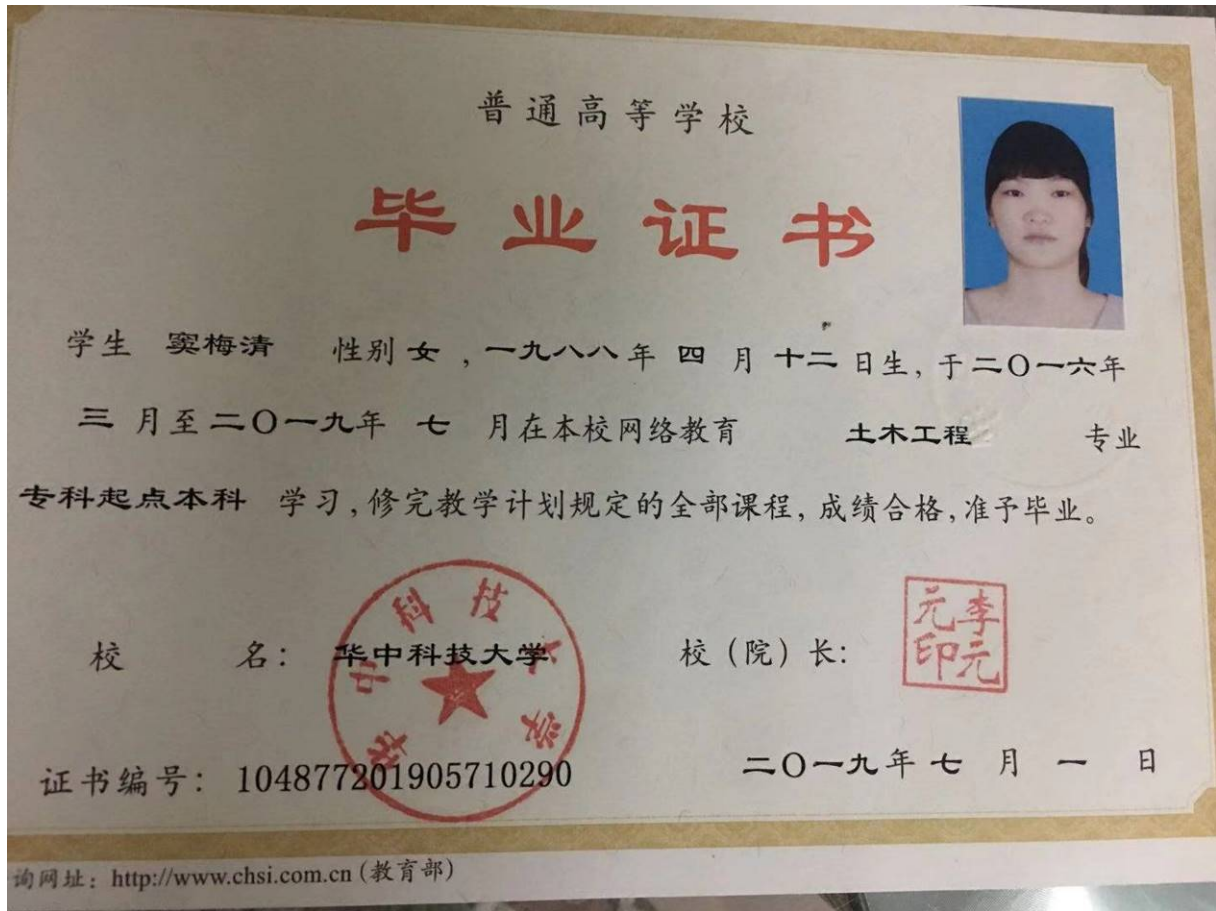 普通高等学校
毕业证书
学生 窦梅清 性别 女 , 一九八八年 四 月 十二 日生, 于二〇一六年
三 月至二〇一九年 七 月在本校网络教育 土木工程 专业
专科起点本科 学习, 修完教学计划规定的全部课程, 成绩合格, 准予毕业。
校 名: 华中科技大学 校 (院) 长:
华中科技大学
李元元印
证书编号: 104877201905710290 二〇一九年 七 月 一 日
询网址: http://www.chsi.com.cn (教育部)